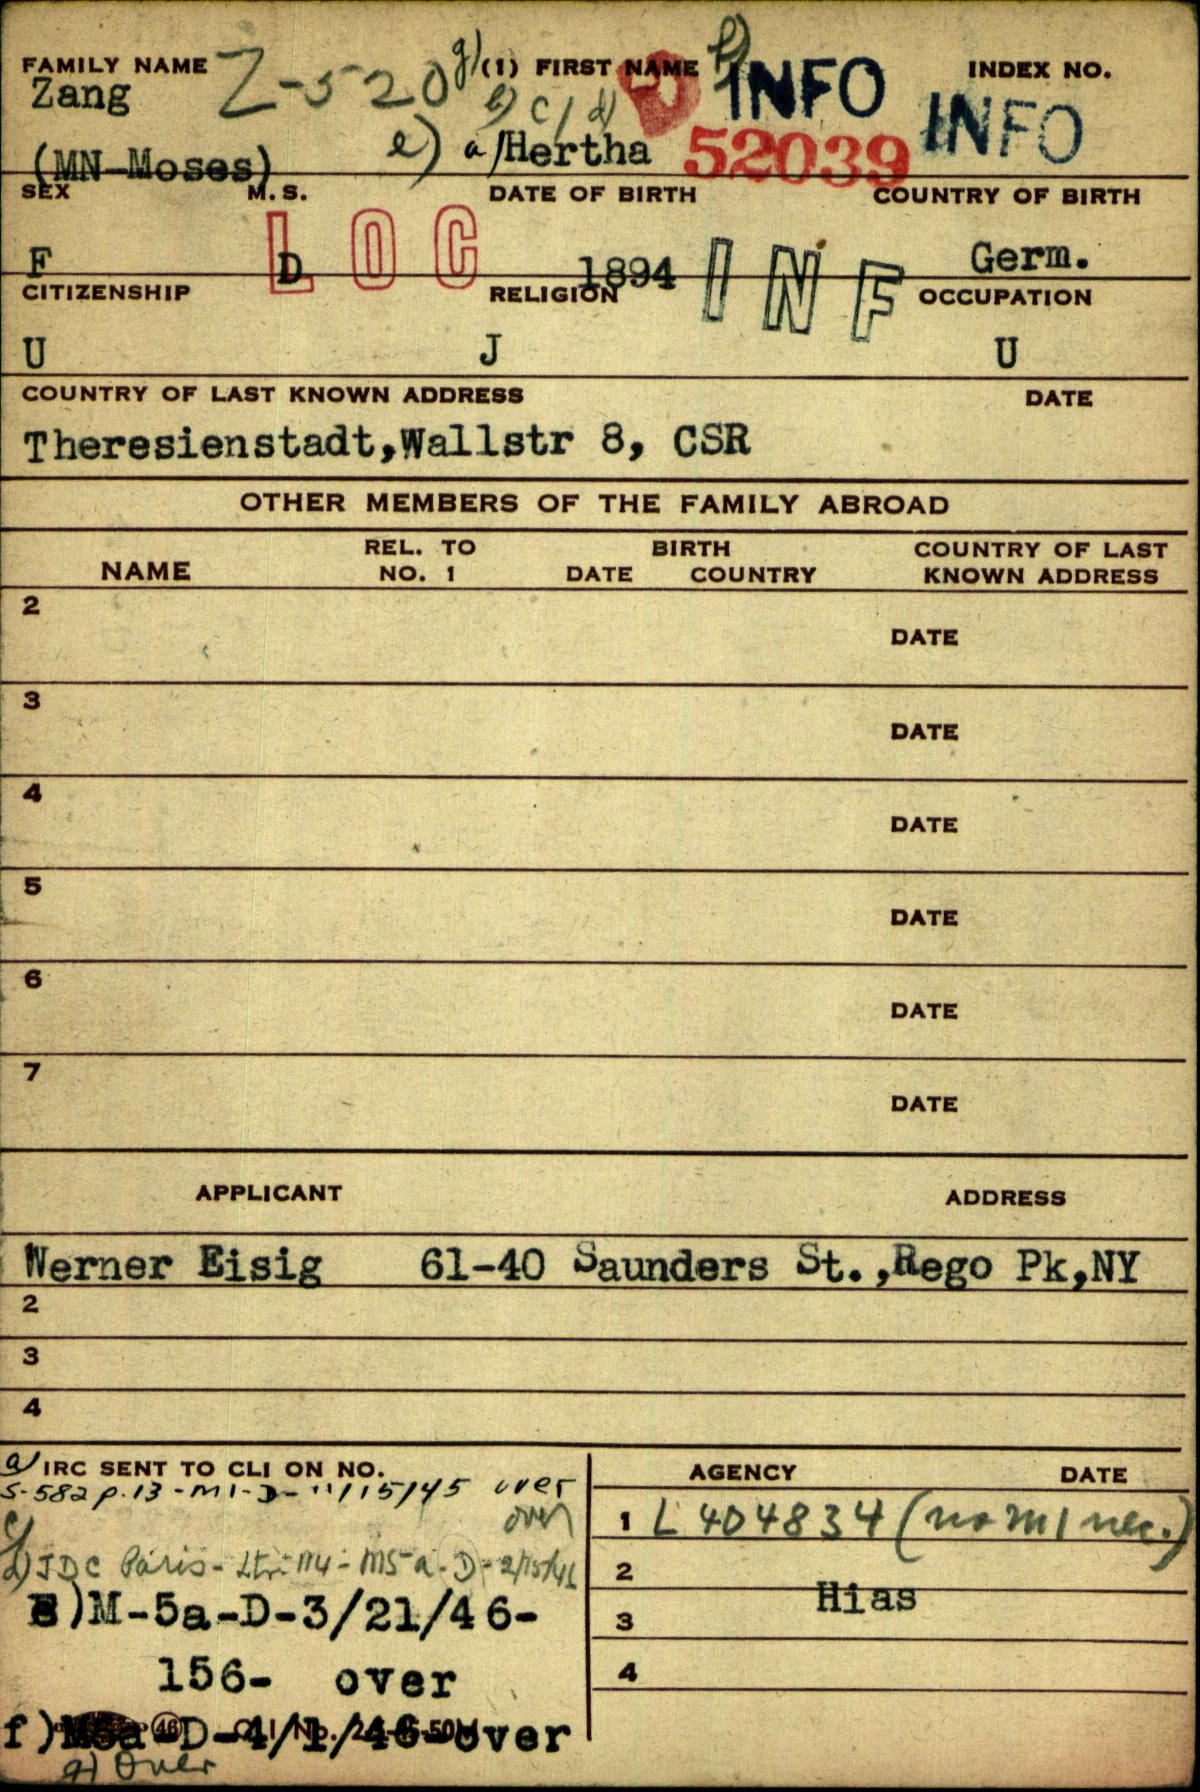 FAMILY NAME Z-520 g) (1) FIRST NAME f) INFO INDEX NO.
Zang b) c/ d) INFO
(MN-Moses) e) a/Hertha 52039
SEX M.S. DATE OF BIRTH COUNTRY OF BIRTH
F D LOC 1894 INF Germ.
CITIZENSHIP RELIGION OCCUPATION
U J U
COUNTRY OF LAST KNOWN ADDRESS DATE
Theresienstadt,Wallstr 8, CSR
OTHER MEMBERS OF THE FAMILY ABROAD
NAME REL. TO NO. 1 BIRTH DATE COUNTRY COUNTRY OF LAST KNOWN ADDRESS
2 DATE
3 DATE
4 DATE
5 DATE
6 DATE
7 DATE
APPLICANT ADDRESS
Werner Eisig 61-40 Saunders St.,Rego Pk,NY
2
3
4
a) IRC SENT TO CLI ON NO. AGENCY DATE
S-582 p.13-M1-D-11/15/45 over
over
1 L404834 (no M1 nec.)
c/
d) JDC Paris-Ltr-114-M5-a-D-2/15/46
2
Hias
e)M-5a-D-3/21/46-
3
156- over
4
f)M5a-D-4/1/46-over
g) Over